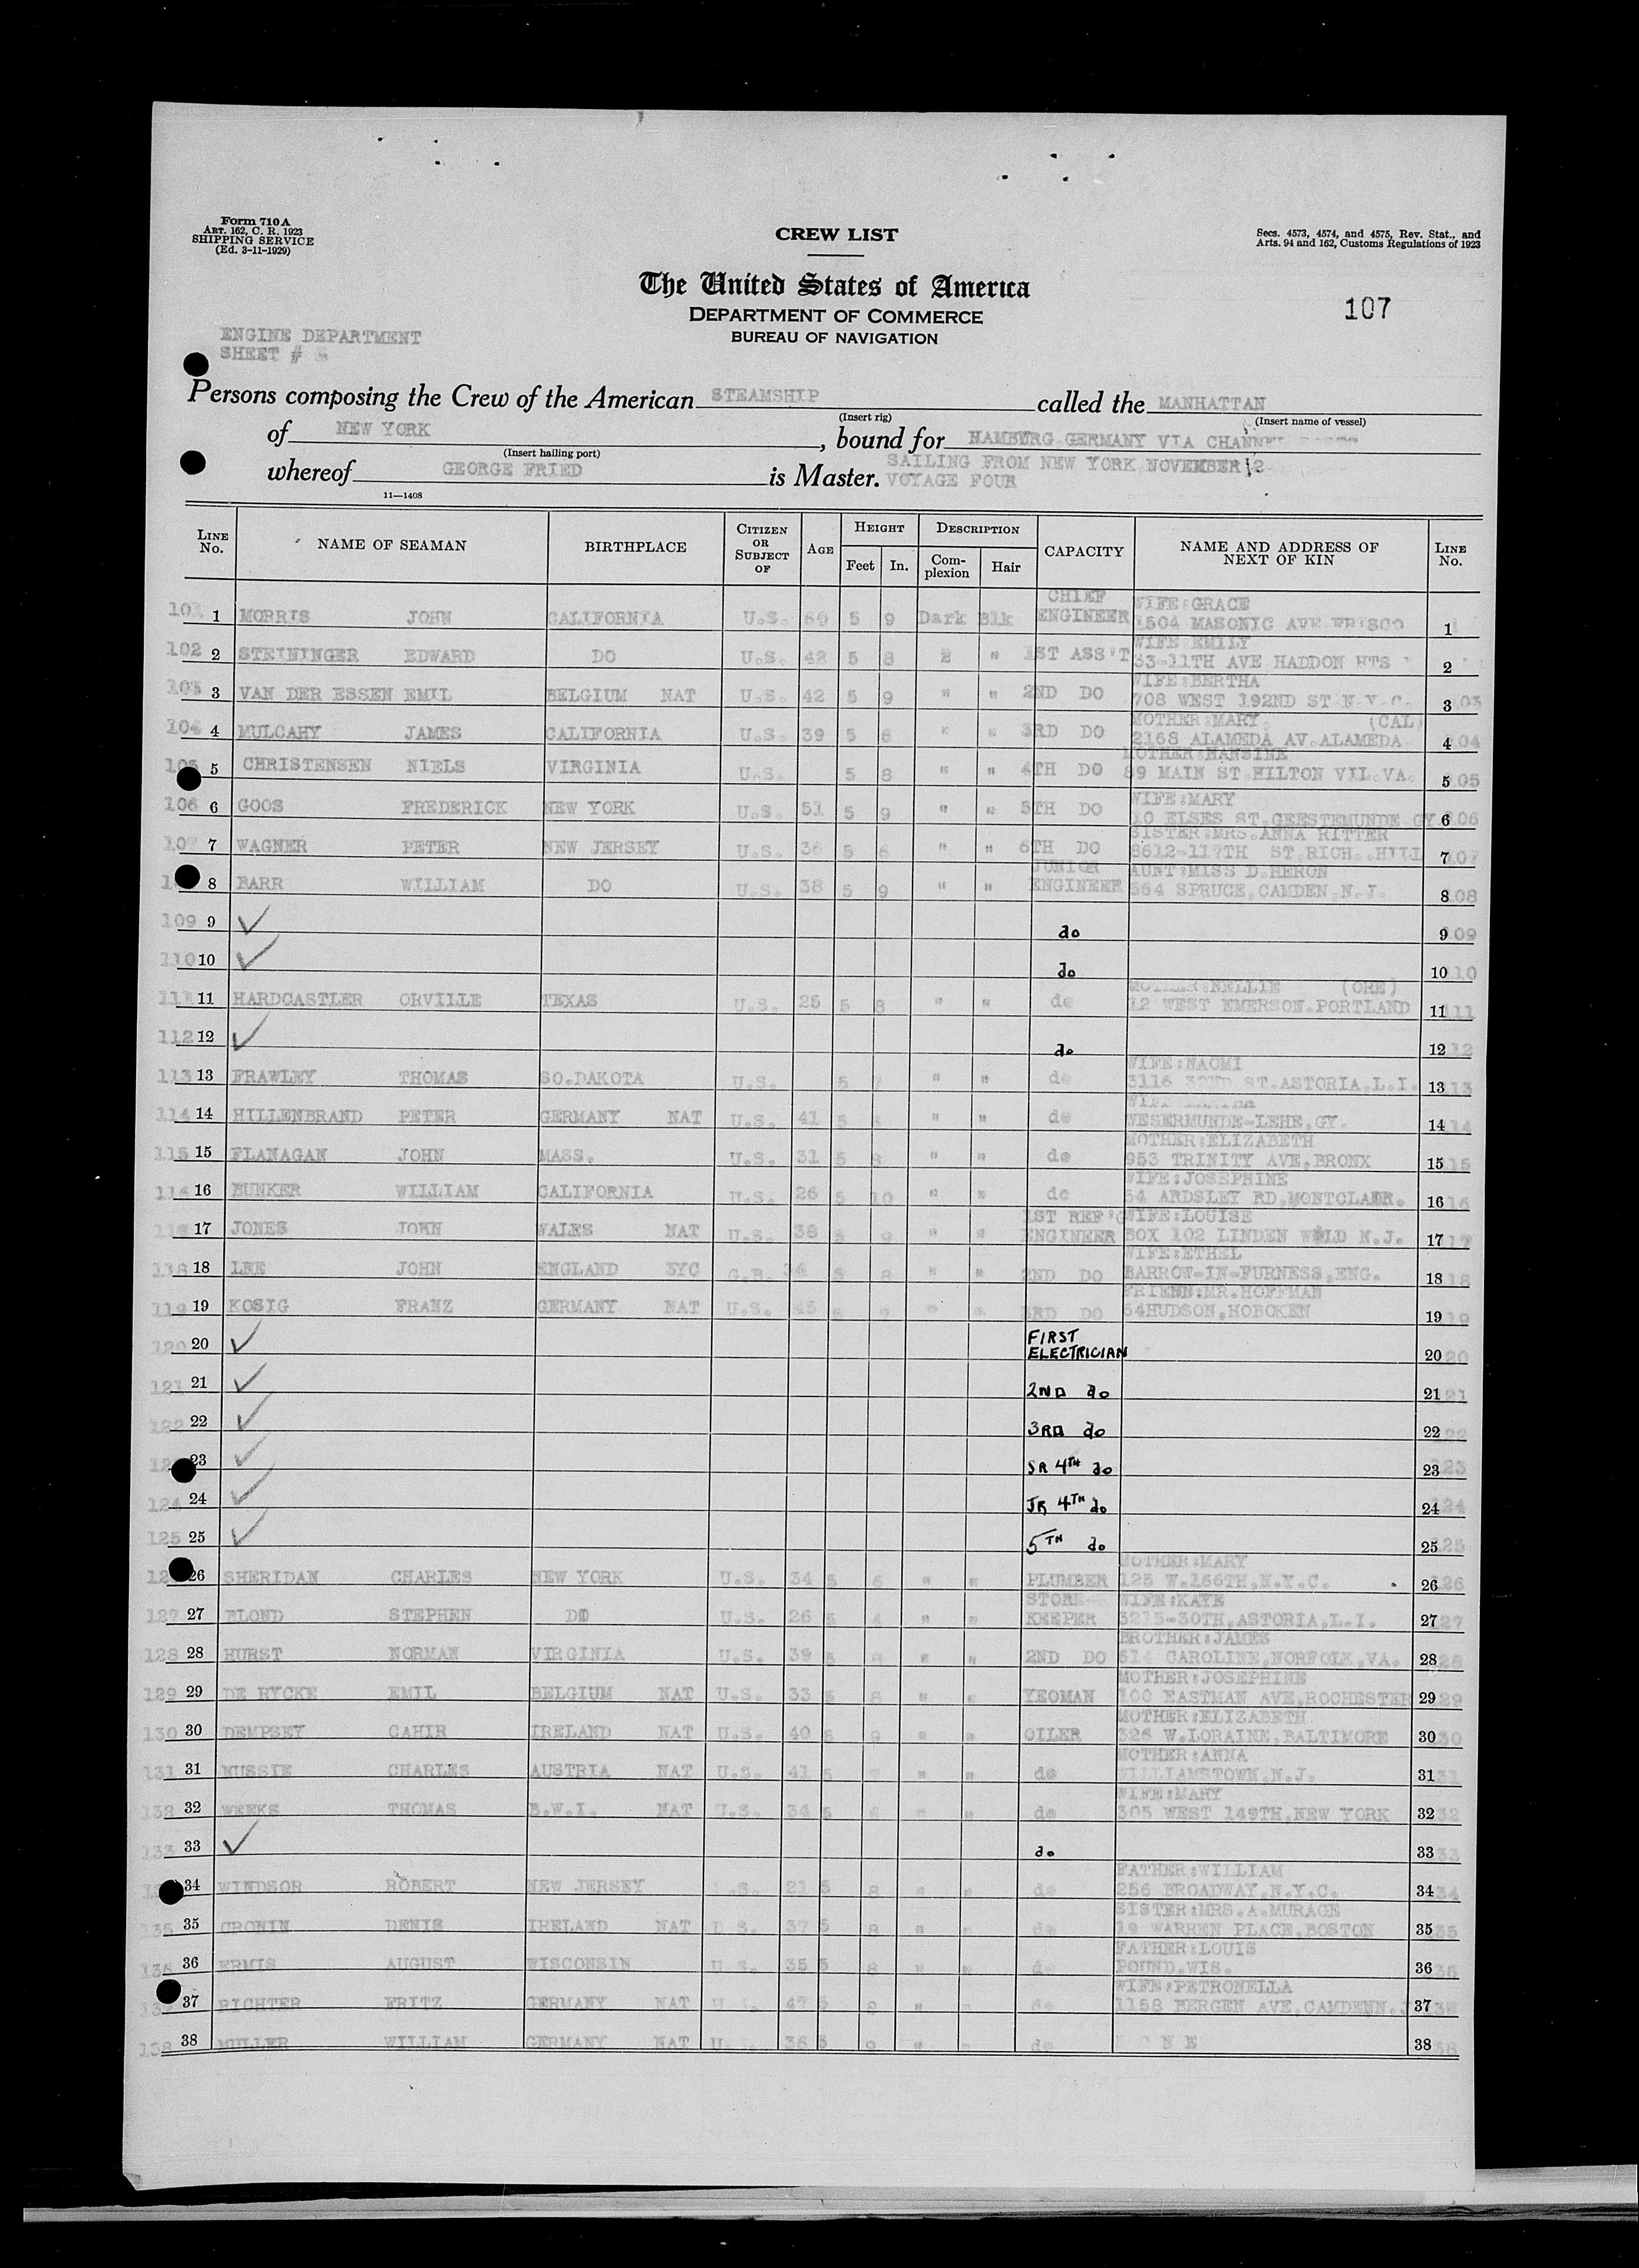 Form 710 A
ART. 162, C. R. 1923
SHIPPING SERVICE
(Ed. 3-11-1929)
CREW LIST
Secs. 4573, 4574, and 4575, Rev. Stat., and
Arts. 94 and 162, Customs Regulations of 1923
The United States of America
DEPARTMENT OF COMMERCE
BUREAU OF NAVIGATION
107
ENGINE DEPARTMENT
SHEET #
Persons composing the Crew of the American STEAMSHIP called the MANHATTAN
(Insert rig) (Insert name of vessel)
of NEW YORK, bound for HAMBURG GERMANY VIA CHANNEL
(Insert hailing port)
whereof GEORGE FRIED is Master. SAILING FROM NEW YORK NOVEMBER
VOYAGE FOUR
11—1408
LINE No. NAME OF SEAMAN BIRTHPLACE CITIZEN OR SUBJECT OF AGE HEIGHT Feet In. DESCRIPTION Complexion Hair CAPACITY NAME AND ADDRESS OF NEXT OF KIN LINE No.
101 1 MORRIS JOHN CALIFORNIA U.S. 5 9 Dark Blk CHIEF ENGINEER WIFE:GRACE 1504 MASONIC AVE FRISCO 1
102 2 STEININGER EDWARD DO U.S. 42 5 8 " 1ST ASS'T WIFE EMILY 33-11TH AVE HADDON HTS 2
103 3 VAN DER ESSEN EMIL BELGIUM NAT U.S. 42 5 9 " " 2ND DO WIFE:BERTHA 708 WEST 192ND ST N.Y.C. 3 03
104 4 MULCAHY JAMES CALIFORNIA U.S. 39 5 6 " " 3RD DO MOTHER:MARY (CAL) 2168 ALAMEDA AV.ALAMEDA 4 04
105 5 CHRISTENSEN NIELS VIRGINIA U.S. 5 8 " " 4TH DO MOTHER:HANSINE 89 MAIN ST.HILTON VIL.VA. 5 05
106 6 GOOS FREDERICK NEW YORK U.S. 51 5 9 " " 5TH DO WIFE:MARY 10 ELSES ST.GEESTEMUNDE GY 6 06
107 7 WAGNER PETER NEW JERSEY U.S. 36 5 6 " " 6TH DO SISTER:MRS.ANNA RITTER 8612-117TH ST.RICH.HILL 7 07
8 BARR WILLIAM DO U.S. 38 5 9 " " JUNIOR ENGINEER AUNT:MISS D.HERON 564 SPRUCE,CAMDEN,N.J. 8 08
109 9 ✓ do 9 09
110 10 ✓ do 10 10
111 11 HARDCASTLER ORVILLE TEXAS U.S. 25 5 8 " " do MOTHER:NELLIE (ORE) 12 WEST EMERSON.PORTLAND 11 11
112 12 ✓ do 12 12
113 13 FRAWLEY THOMAS SO.DAKOTA U.S. 5 7 " " do WIFE:NAOMI 3116 32ND ST.ASTORIA.L.I. 13 13
114 14 HILLENBRAND PETER GERMANY NAT U.S. 41 5 " " do WIFE WESERMUNDE-LEHE,GY. 14 14
115 15 FLANAGAN JOHN MASS. U.S. 31 5 8 " " do MOTHER:ELIZABETH 953 TRINITY AVE.BRONX 15 15
116 16 BUNKER WILLIAM CALIFORNIA U.S. 26 5 10 " " do WIFE:JOSEPHINE 54 ARDSLEY RD.MONTCLAIR. 16 16
17 JONES JOHN WALES NAT U.S. 38 5 9 " " 1ST REF'G ENGINEER WIFE:LOUISE BOX 102 LINDEN WOLD N.J. 17 17
118 18 LEE JOHN ENGLAND SYC G.B. 5 8 " " 2ND DO WIFE:ETHEL BARROW-IN-FURNESS,ENG. 18 18
119 19 KOSIG FRANZ GERMANY NAT U.S. 45 5 7 " " 3RD DO FRIEND:MR.HOFFMAN 54HUDSON,HOBOKEN 19 19
120 20 ✓ FIRST ELECTRICIAN 20 20
121 21 ✓ 2ND do 21 21
122 22 ✓ 3RD do 22 22
23 ✓ SR 4TH do 23 23
124 24 ✓ JR 4TH do 24 24
125 25 ✓ 5TH do 25 25
26 SHERIDAN CHARLES NEW YORK U.S. 34 5 6 " " PLUMBER MOTHER:MARY 125 W.166TH,N.Y.C. 26 26
127 27 BLOND STEPHEN DO U.S. 26 5 4 " " STORE KEEPER WIFE:KATE 3215-30TH,ASTORIA,L.I. 27 27
128 28 HURST NORMAN VIRGINIA U.S. 39 5 8 " " 2ND DO BROTHER:JAMES 514 CAROLINE,NORFOLK,VA. 28 28
129 29 DE RYCKE EMIL BELGIUM NAT U.S. 33 5 8 " " YEOMAN MOTHER:JOSEPHINE 100 EASTMAN AVE,ROCHESTER 29 29
130 30 DEMPSEY CAHIR IRELAND NAT U.S. 40 5 9 " " OILER MOTHER:ELIZABETH 326 W.LORAINE,BALTIMORE 30 30
131 31 CHARLES AUSTRIA NAT U.S. 41 5 7 " " do MOTHER:ANNA WILLIAMSTOWN,N.J. 31 31
132 32 WEEKS THOMAS B.W.I. NAT U.S. 34 5 6 " " do WIFE:MARY 305 WEST 149TH,NEW YORK 32 32
133 33 ✓ do 33 33
34 WINDSOR ROBERT NEW JERSEY U.S. 21 5 8 " " do FATHER:WILLIAM 256 BROADWAY,N.Y.C. 34 34
135 35 CRONIN DENIS IRELAND NAT U.S. 37 5 8 " " do SISTER:MRS.A.MURAGE 19 WARREN PLACE,BOSTON 35 35
136 36 ERMIS AUGUST WISCONSIN U.S. 35 5 8 " " do FATHER:LOUIS POUND.WIS. 36 36
37 RICHTER FRITZ GERMANY NAT U. 47 5 8 " " do WIFE:PETRONELLA 1158 BERGEN AVE,CAMDENN. 37
138 38 MULLER WILLIAM GERMANY NAT U. 36 5 9 " " do 38 38